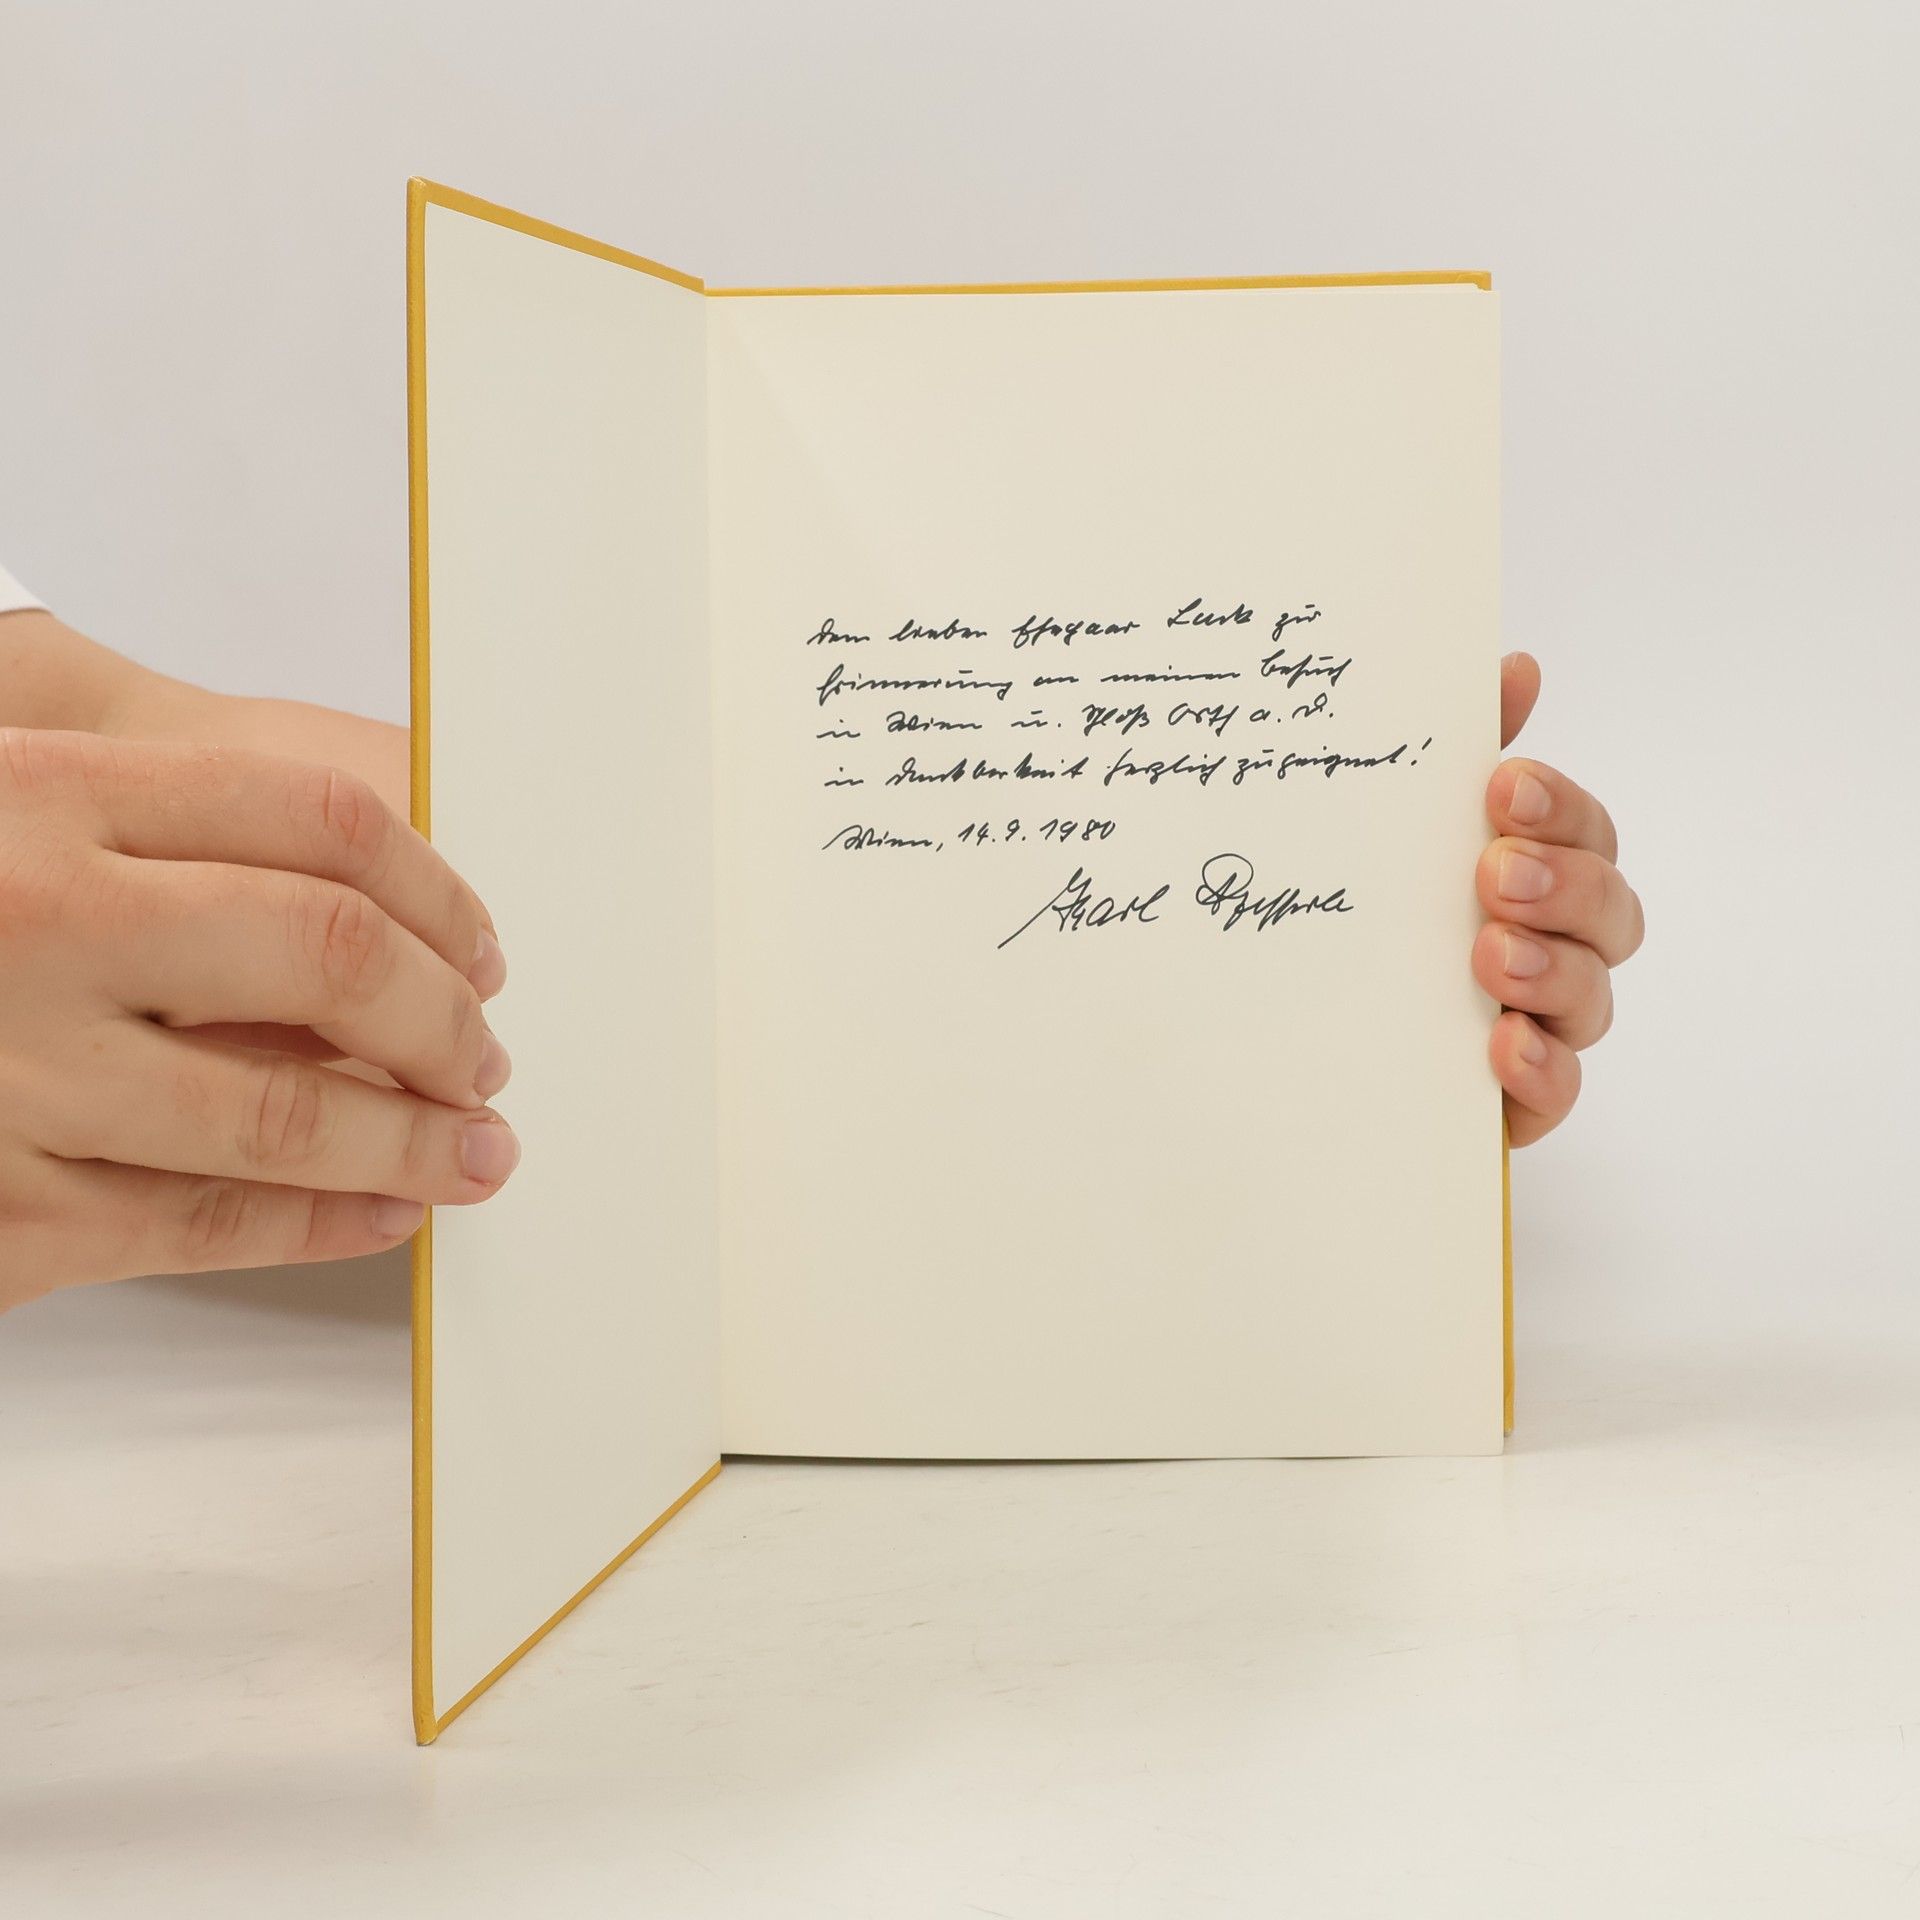 Dem lieben Ehepaar Lack zur
Erinnerung an meinen Besuch
in Wien u. Schloß Orth a. D.
in Dankbarkeit herzlich zugeeignet!
Wien, 14. 9. 1980
Karl